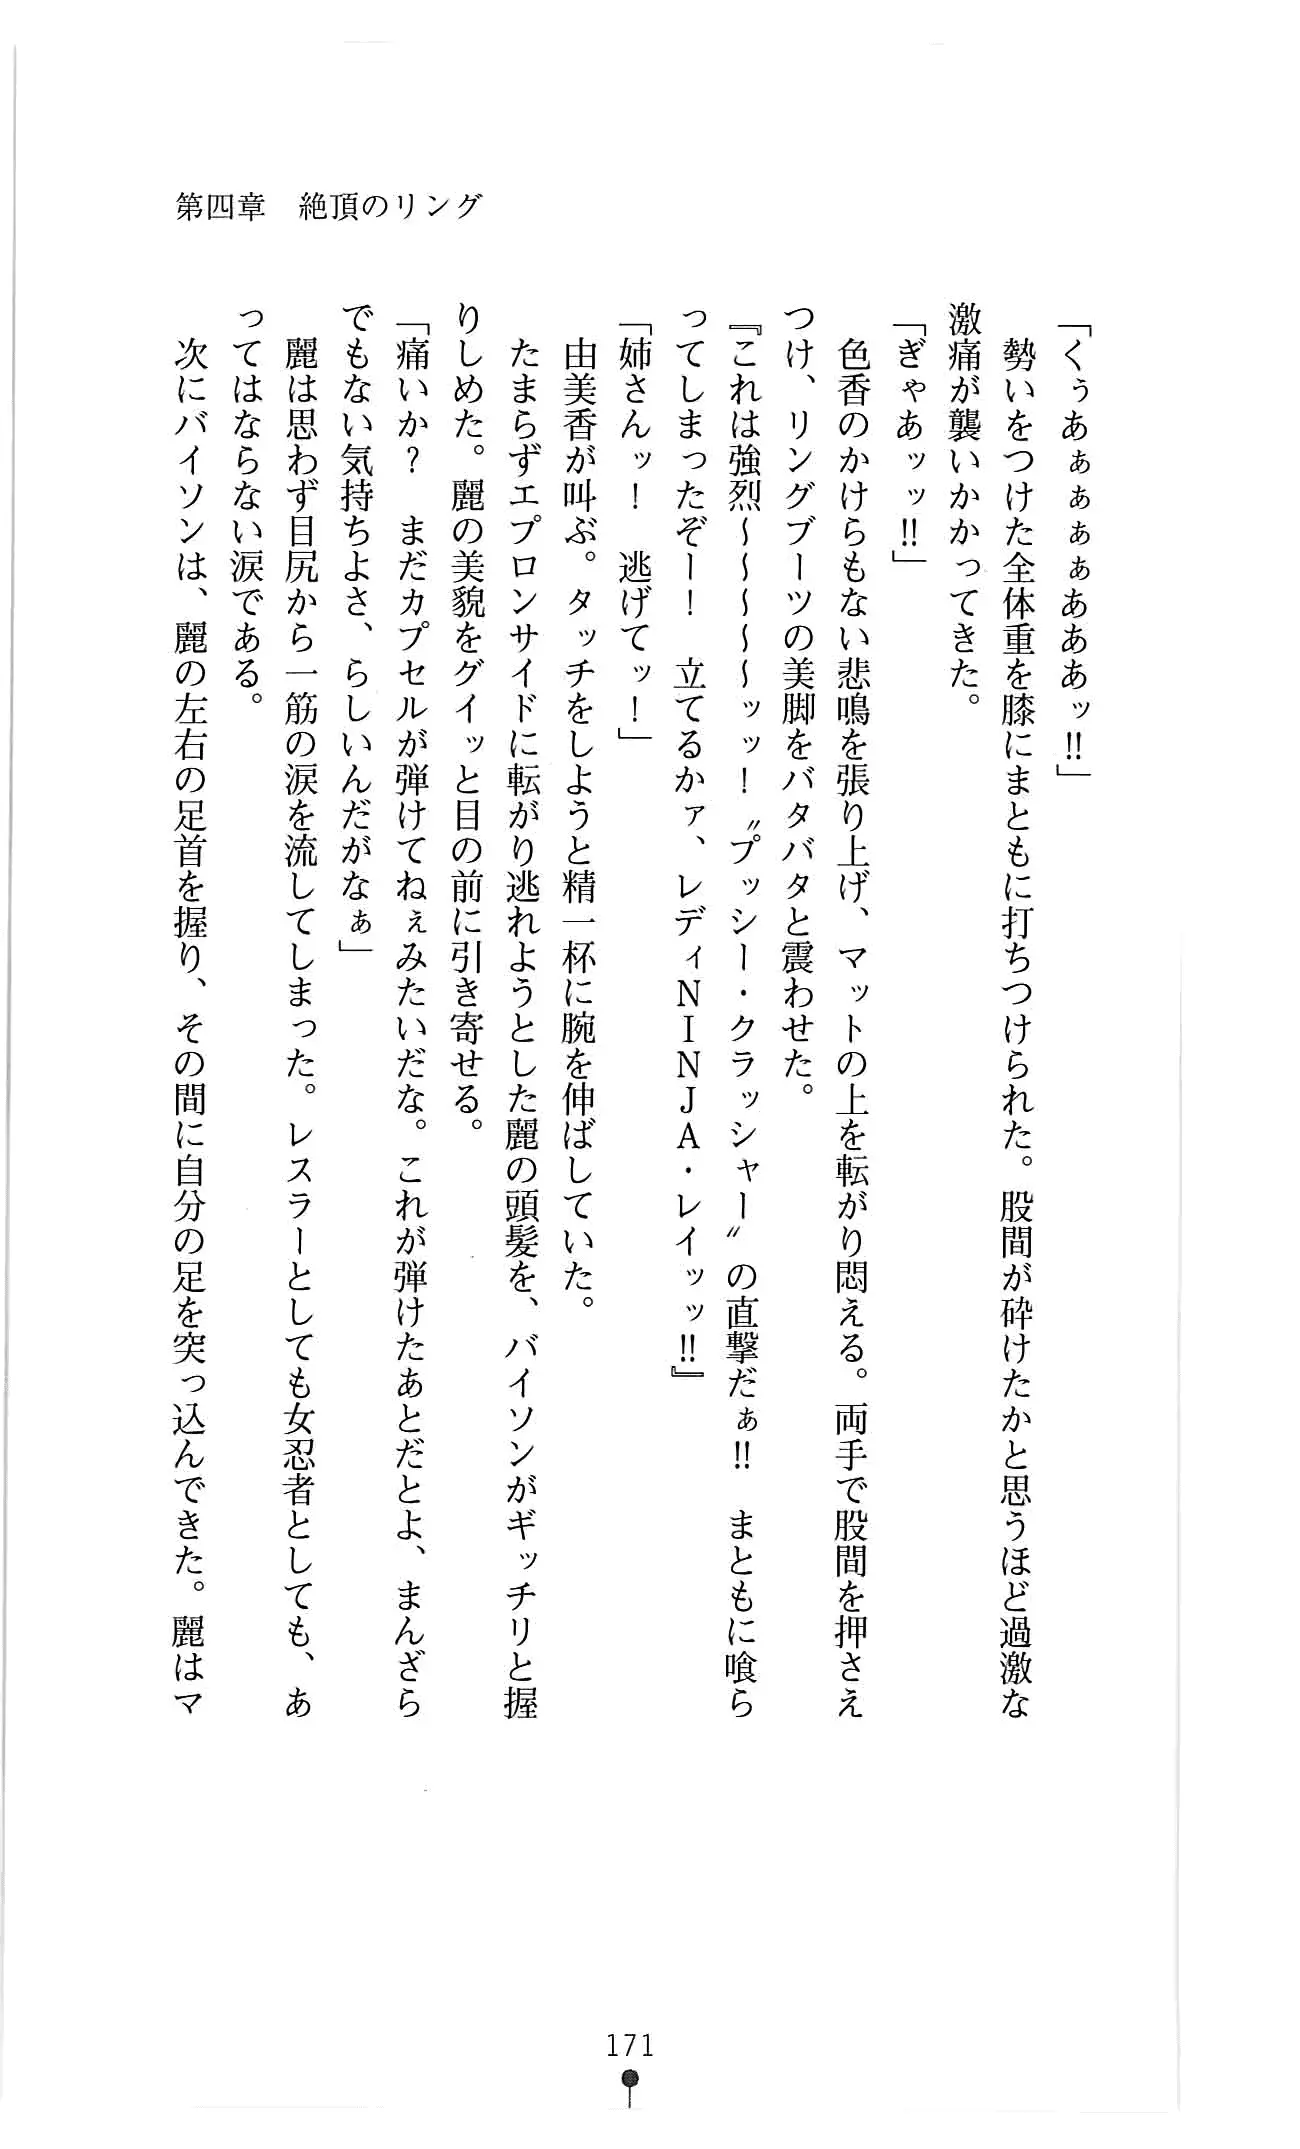 第四章　絶頂のリング
「くぅあぁぁぁぁあああッ!!」
　勢いをつけた全体重を膝にまともに打ちつけられた。股間が砕けたかと思うほど過激な
激痛が襲いかかってきた。
「ぎゃあッッ!!」
　色香のかけらもない悲鳴を張り上げ、マットの上を転がり悶える。両手で股間を押さえ
つけ、リングブーツの美脚をバタバタと震わせた。
『これは強烈～～～～～ッッ！〝プッシー・クラッシャー〟の直撃だぁ!!　まともに喰ら
ってしまったぞー！　立てるかァ、レディＮＩＮＪＡ・レイッッ!!』
「姉さんッ！　逃げてッ！」
　由美香が叫ぶ。タッチをしようと精一杯に腕を伸ばしていた。
　たまらずエプロンサイドに転がり逃れようとした麗の頭髪を、バイソンがギッチリと握
りしめた。麗の美貌をグイッと目の前に引き寄せる。
「痛いか？　まだカプセルが弾けてねぇみたいだな。これが弾けたあとだとよ、まんざら
でもない気持ちよさ、らしいんだがなぁ」
　麗は思わず目尻から一筋の涙を流してしまった。レスラーとしても女忍者としても、あ
ってはならない涙である。
　次にバイソンは、麗の左右の足首を握り、その間に自分の足を突っ込んできた。麗はマ
171